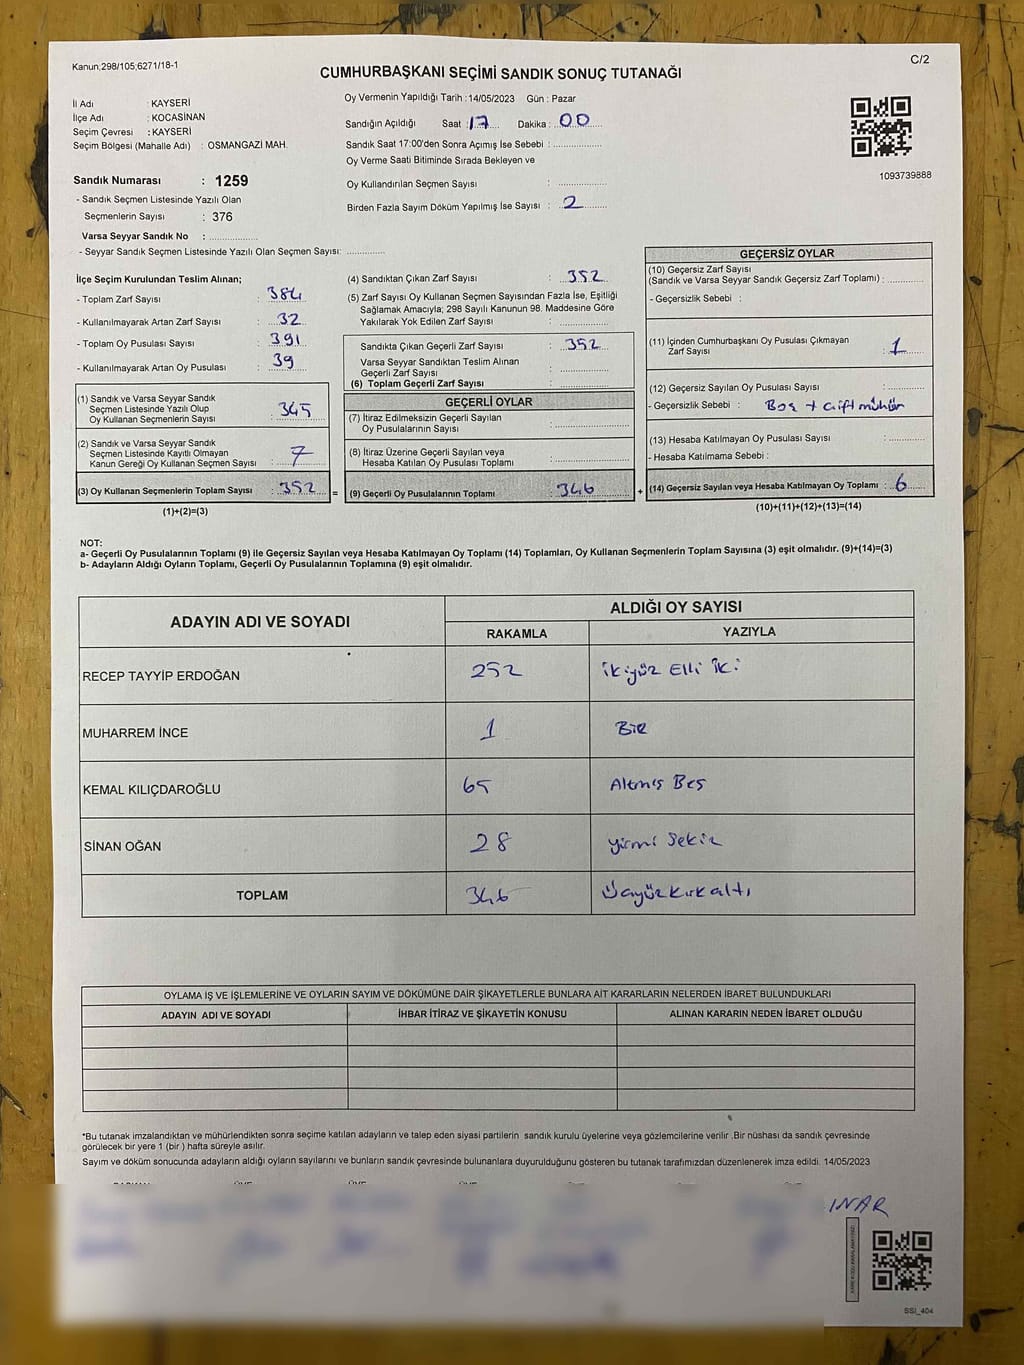 Kanun;298/105;6271/18-1
C/2
CUMHURBAŞKANI SEÇİMİ SANDIK SONUÇ TUTANAĞI
İl Adı : KAYSERİ
İlçe Adı : KOCASİNAN
Seçim Çevresi : KAYSERİ
Seçim Bölgesi (Mahalle Adı) : OSMANGAZİ MAH.
Sandık Numarası : 1259
- Sandık Seçmen Listesinde Yazılı Olan
Seçmenlerin Sayısı : 376
Varsa Seyyar Sandık No :
- Seyyar Sandık Seçmen Listesinde Yazılı Olan Seçmen Sayısı:
Oy Vermenin Yapıldığı Tarih :14/05/2023 Gün : Pazar
Sandığın Açıldığı Saat : 17 Dakika : 00
Sandık Saat 17:00'den Sonra Açımış İse Sebebi :
Oy Verme Saati Bitiminde Sırada Bekleyen ve
Oy Kullandırılan Seçmen Sayısı :
Birden Fazla Sayım Döküm Yapılmış İse Sayısı : 2
1093739888
İlçe Seçim Kurulundan Teslim Alınan;
- Toplam Zarf Sayısı : 384
- Kullanılmayarak Artan Zarf Sayısı : 32
- Toplam Oy Pusulası Sayısı : 391
- Kullanılmayarak Artan Oy Pusulası : 39
(1) Sandık ve Varsa Seyyar Sandık
Seçmen Listesinde Yazılı Olup
Oy Kullanan Seçmenlerin Sayısı : 345
(2) Sandık ve Varsa Seyyar Sandık
Seçmen Listesinde Kayıtlı Olmayan
Kanun Gereği Oy Kullanan Seçmen Sayısı : 7
(3) Oy Kullanan Seçmenlerin Toplam Sayısı : 352 =
(1)+(2)=(3)
(4) Sandıktan Çıkan Zarf Sayısı : 352
(5) Zarf Sayısı Oy Kullanan Seçmen Sayısından Fazla İse, Eşitliği
Sağlamak Amacıyla; 298 Sayılı Kanunun 98. Maddesine Göre
Yakılarak Yok Edilen Zarf Sayısı :
Sandıkta Çıkan Geçerli Zarf Sayısı : 352
Varsa Seyyar Sandıktan Teslim Alınan
Geçerli Zarf Sayısı :
(6) Toplam Geçerli Zarf Sayısı :
GEÇERLİ OYLAR
(7) İtiraz Edilmeksizin Geçerli Sayılan
Oy Pusulalarının Sayısı :
(8) İtiraz Üzerine Geçerli Sayılan veya
Hesaba Katılan Oy Pusulası Toplamı :
(9) Geçerli Oy Pusulalarının Toplamı : 346 +
GEÇERSİZ OYLAR
(10) Geçersiz Zarf Sayısı
(Sandık ve Varsa Seyyar Sandık Geçersiz Zarf Toplamı) :
- Geçersizlik Sebebi :
(11) İçinden Cumhurbaşkanı Oy Pusulası Çıkmayan
Zarf Sayısı : 1
(12) Geçersiz Sayılan Oy Pusulası Sayısı :
- Geçersizlik Sebebi : Boş + çift mühür
(13) Hesaba Katılmayan Oy Pusulası Sayısı :
- Hesaba Katılmama Sebebi :
(14) Geçersiz Sayılan veya Hesaba Katılmayan Oy Toplamı : 6
(10)+(11)+(12)+(13)=(14)
NOT:
a- Geçerli Oy Pusulalarının Toplamı (9) ile Geçersiz Sayılan veya Hesaba Katılmayan Oy Toplamı (14) Toplamları, Oy Kullanan Seçmenlerin Toplam Sayısına (3) eşit olmalıdır. (9)+(14)=(3)
b- Adayların Aldığı Oyların Toplamı, Geçerli Oy Pusulalarının Toplamına (9) eşit olmalıdır.
ADAYIN ADI VE SOYADI ALDIĞI OY SAYISI
RAKAMLA YAZIYLA
RECEP TAYYİP ERDOĞAN 252 ikiyüz Elli iki
MUHARREM İNCE 1 Bir
KEMAL KILIÇDAROĞLU 65 Altmış Beş
SİNAN OĞAN 28 yirmi Sekiz
TOPLAM 346 üçyüzkırkaltı
OYLAMA İŞ VE İŞLEMLERİNE VE OYLARIN SAYIM VE DÖKÜMÜNE DAİR ŞİKAYETLERLE BUNLARA AİT KARARLARIN NELERDEN İBARET BULUNDUKLARI
ADAYIN ADI VE SOYADI İHBAR İTİRAZ VE ŞİKAYETİN KONUSU ALINAN KARARIN NEDEN İBARET OLDUĞU
*Bu tutanak imzalandıktan ve mühürlendikten sonra seçime katılan adayların ve talep eden siyasi partilerin sandık kurulu üyelerine veya gözlemcilerine verilir .Bir nüshası da sandık çevresinde
görülecek bir yere 1 (bir ) hafta süreyle asılır.
Sayım ve döküm sonucunda adayların aldığı oyların sayılarını ve bunların sandık çevresinde bulunanlara duyurulduğunu gösteren bu tutanak tarafımızdan düzenlenerek imza edildi. 14/05/2023
INAR
SSI_404